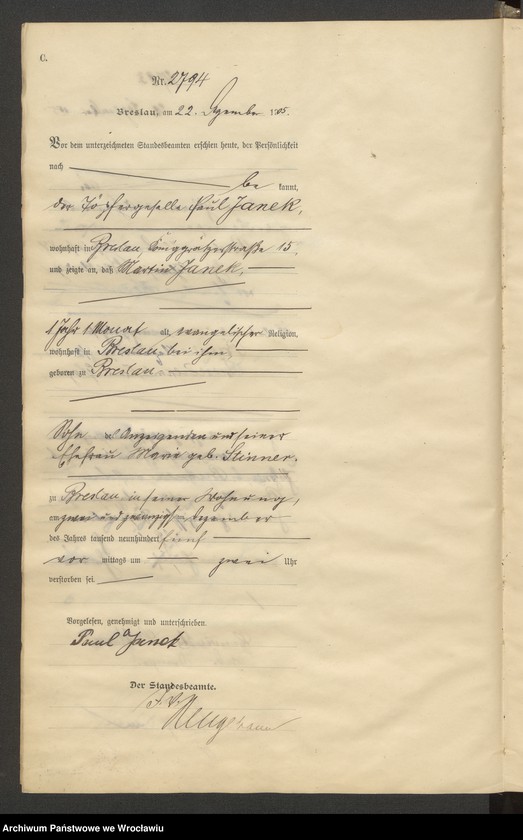 C.
Nr. 2794
Breslau, am 22. Dezember 1905.
Vor dem unterzeichneten Standesbeamten erschien heute, der Persönlichkeit
nach be kannt,
der Töpfergeselle Paul Janek,
wohnhaft in Breslau, Königgrätzerstraße 15,
und zeigte an, daß Martin Janek,
1 Jahr 1 Monat alt, evangelischer Religion,
wohnhaft in Breslau bei ihm
geboren zu Breslau
Sohn des Anzeigenden und seiner
Ehefrau Marie geb. Skinner,
zu Breslau in seiner Wohnung,
am zwei und zwanzigsten Dezember
des Jahres tausend neunhundert fünf
vor mittags um zwei Uhr
verstorben sei.
Vorgelesen, genehmigt und unterschrieben.
Paul Janek
Der Standesbeamte.
J. V.
Archiwum Państwowe we Wrocławiu